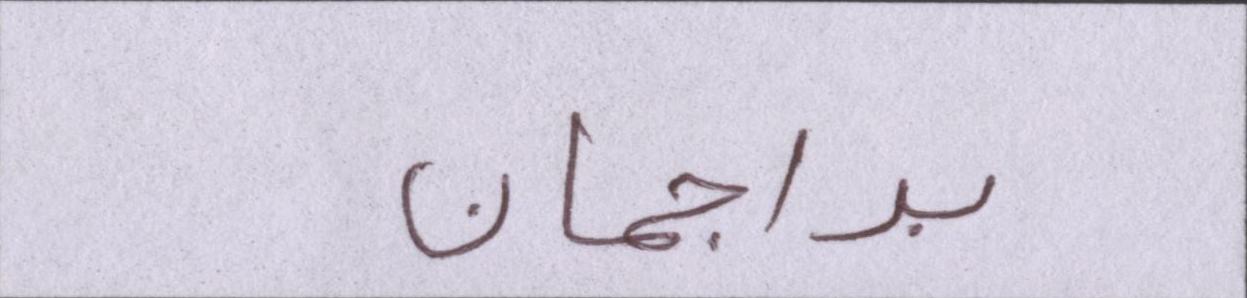 براجمان